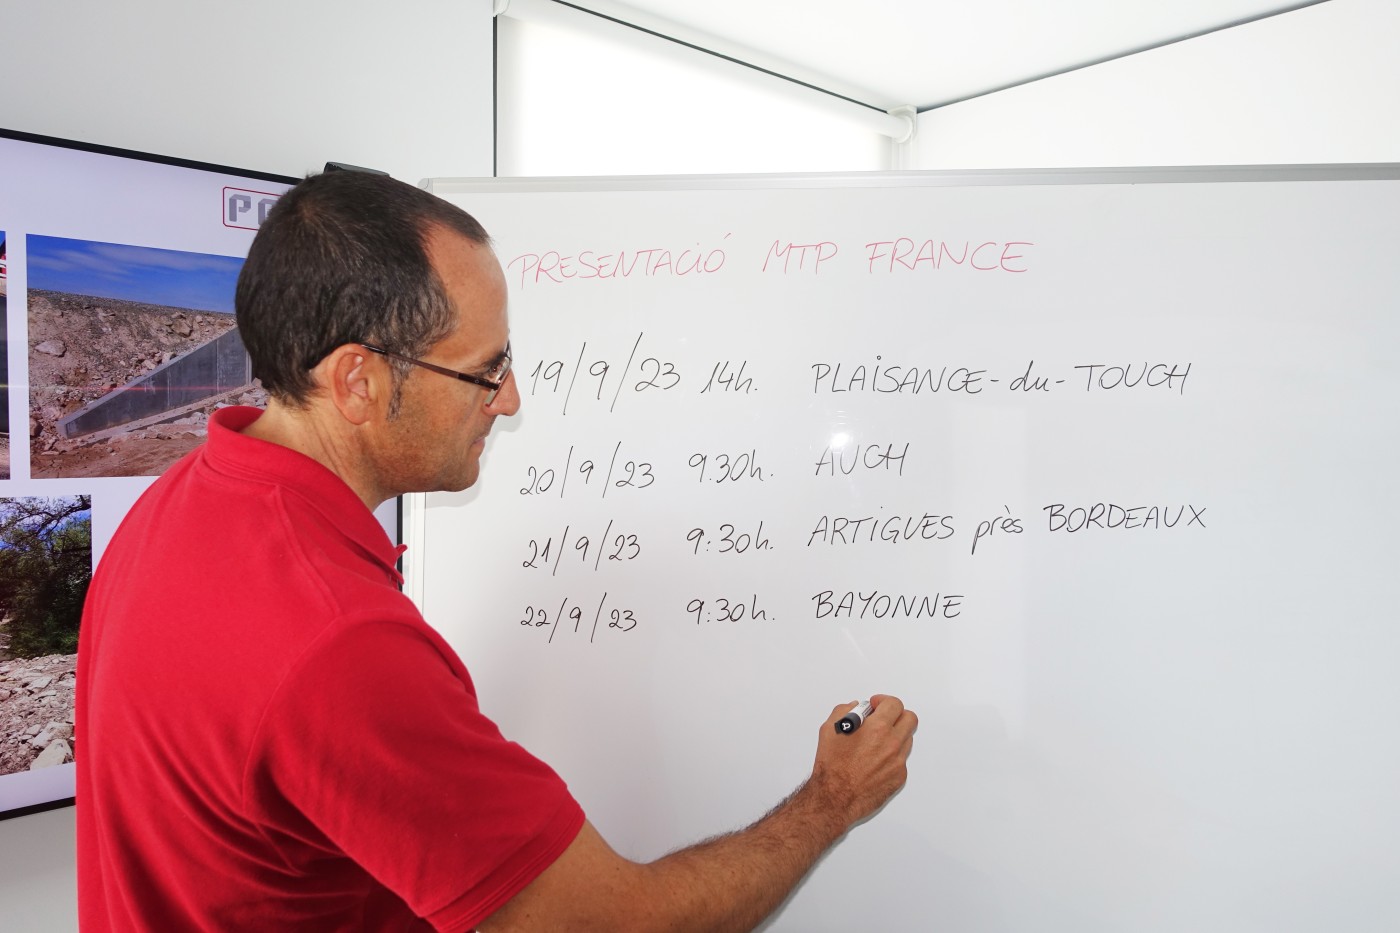 PRESENTACIÓ MTP FRANCE
19/9/23 14h. PLAISANCE-du-TOUCH
20/9/23 9.30h. AUCH
21/9/23 9:30h. ARTIGUES près BORDEAUX
22/9/23 9:30h. BAYONNE